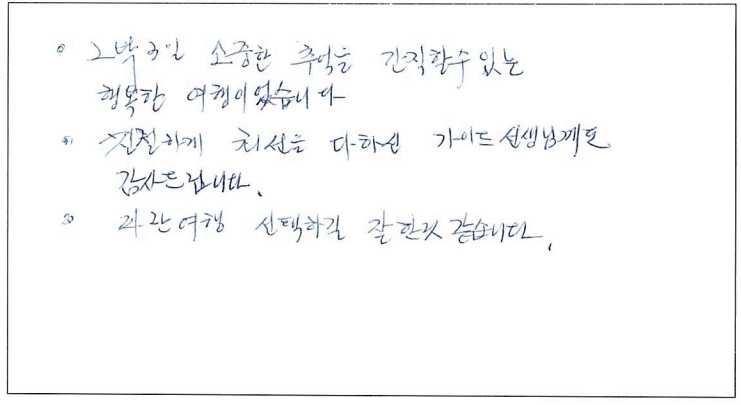 2박3일 소중한 추억을 간직할수 있는
행복한 여행이었습니다
친절하게 최선을 다하신 가이드 선생님께도
감사드립니다.
여행 선택하길 잘한것 같습니다.